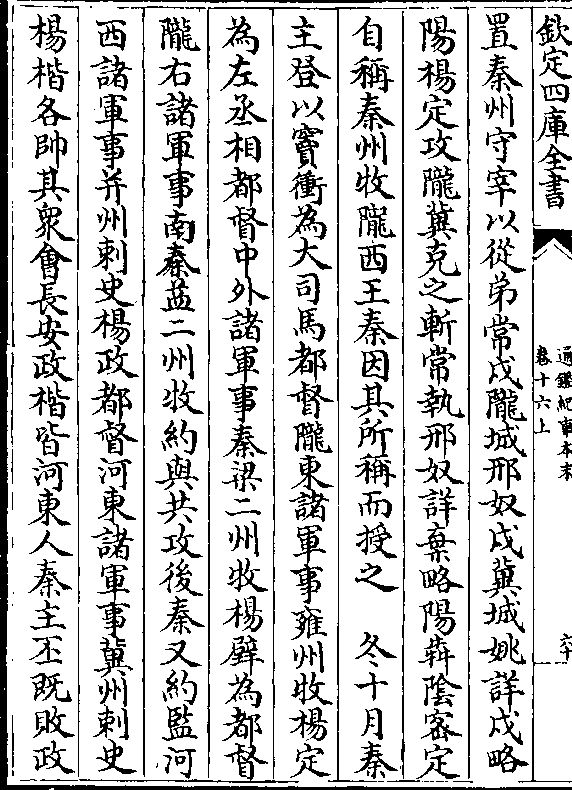 欽定四庫全書
通鑑紀事本末
卷十六上
六十
置秦州守宰以從弟常戍隴城邢奴戍冀城姚詳戍略
陽楊定攻隴冀克之斬常執邢奴詳棄略陽奔陰密定
自稱秦州牧隴西王秦因其所稱而授之　冬十月秦
主登以竇衝為大司馬都督隴東諸軍事雍州牧楊定
為左丞相都督中外諸軍事秦梁二州牧楊壁為都督
隴右諸軍事南秦益二州牧約與共攻後秦又約監河
西諸軍事并州刺史楊政都督河東諸軍事冀州刺史
楊楷各帥其衆會長安政楷皆河東人秦主丕既敗政